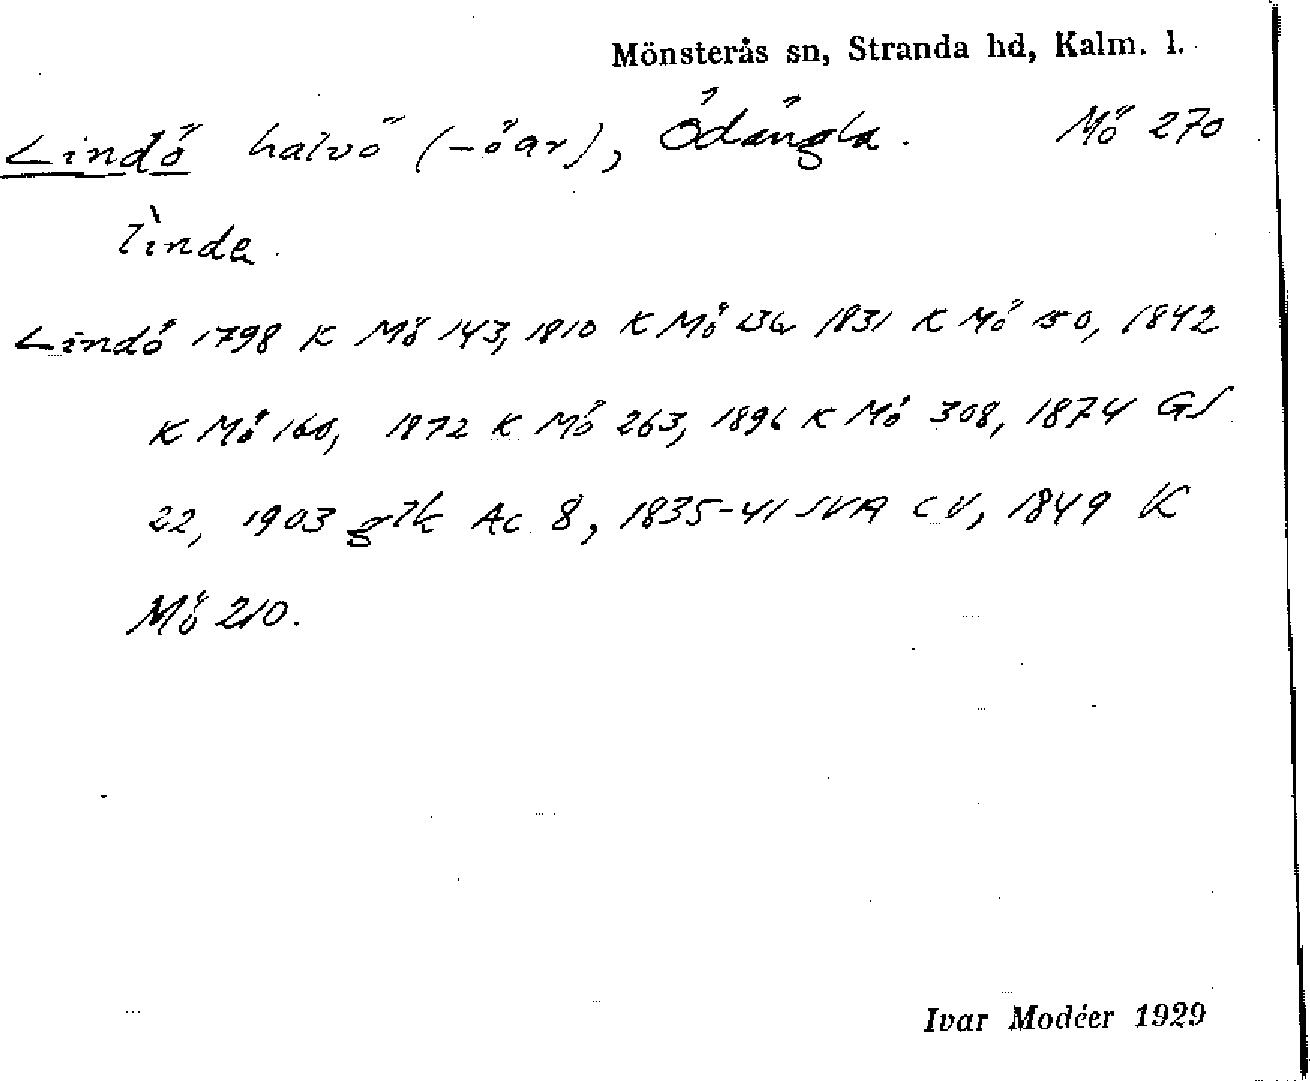 Mönsterås sn, Stranda hd, Kalm. l.
Lindö halvö (-öar), Ödängla. Mö 270
linda.
Lindö 1798 K Mö 143, 1810 K Mö 136 1831 K Mö 150, 1842
K Mö 160, 1872 K Mö 263, 1896 K Mö 308, 1874 GS
22, 1903 glk Ac 8, 1835-41 SVA CV, 1849 K
Mö 210.
Ivar Modéer 1929